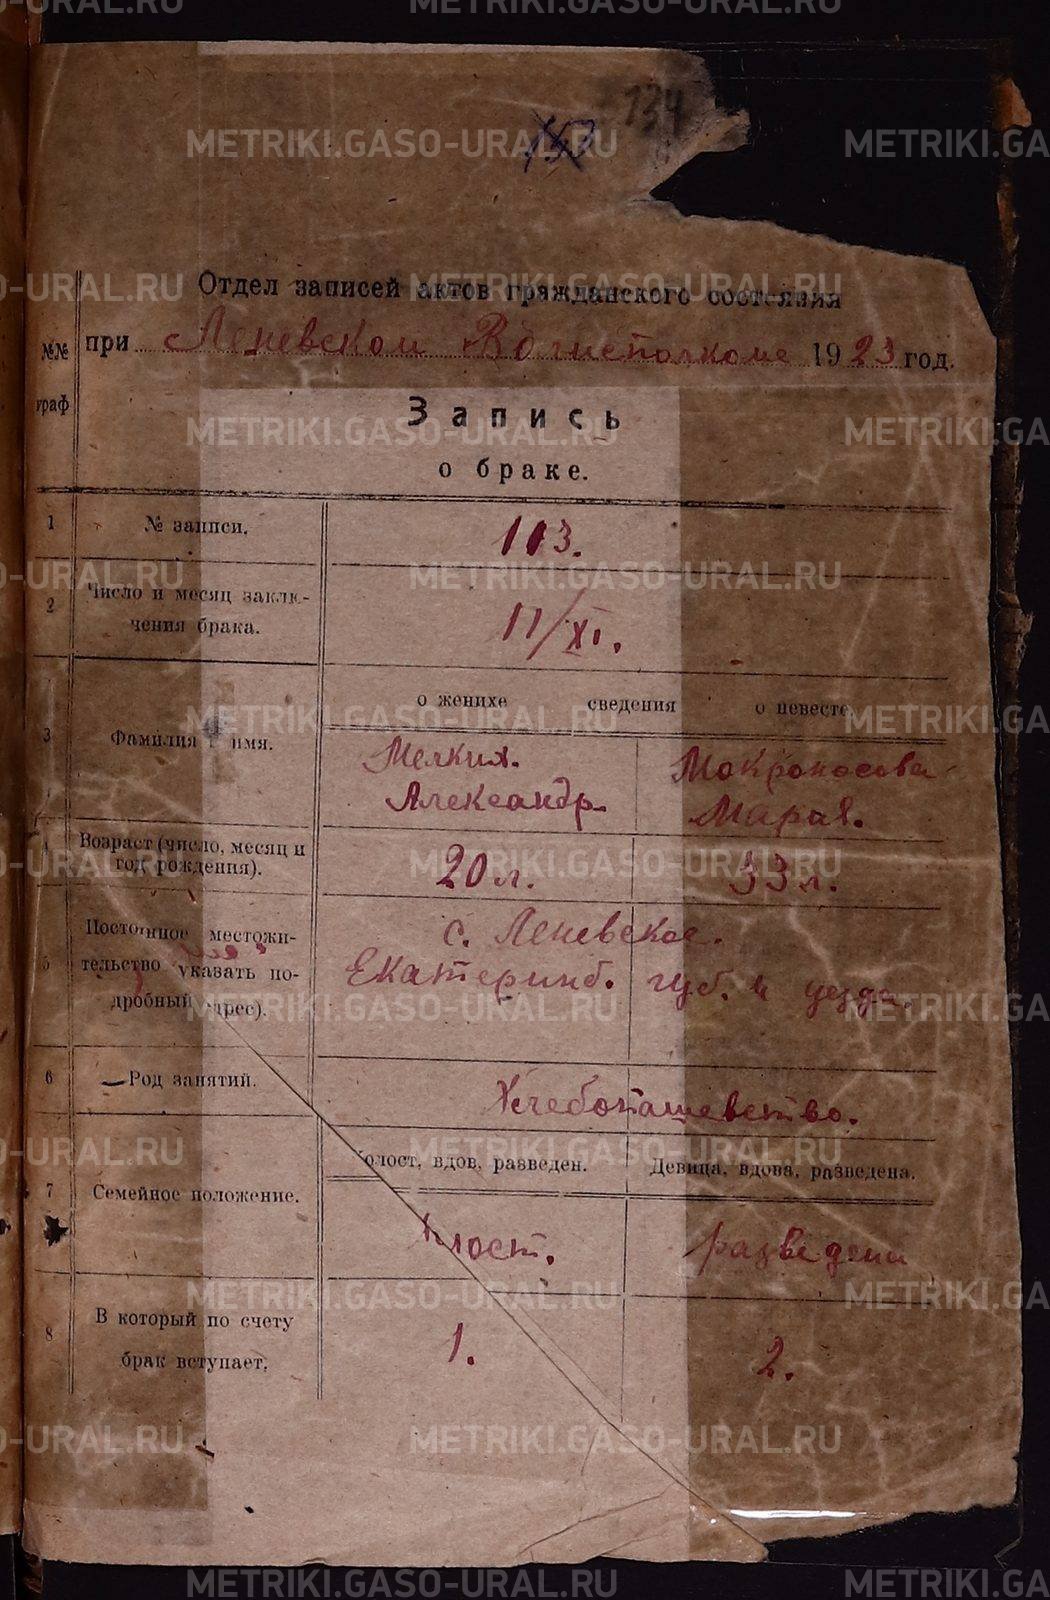 134
Отдел записей актов гражданского состояния
№№ граф
при Леневском Волисполкоме 1923 год.
Запись
о браке.
1 № записи. 113.
2 Число и месяц заклю-
чения брака. 11/XI.
о женихе сведения о невесте.
3 Фамилия и имя.
Мелких. Мокроносова
Александр. Мария.
4 Возраст (число, месяц и
год рождения). 20 л. 33 л.
5 Постоянное местожи-
тельство указать по-
дробный адрес).
с. Леневское.
Екатеринб. губ. и уезда.
6 Род занятий. Хлебопашевство.
Холост, вдов, разведен. Девица, вдова, разведена.
7 Семейное положение.
Холост. разведена
8 В который по счету
брак вступает. 1. 2.
METRIKI.GASO-URAL.RU